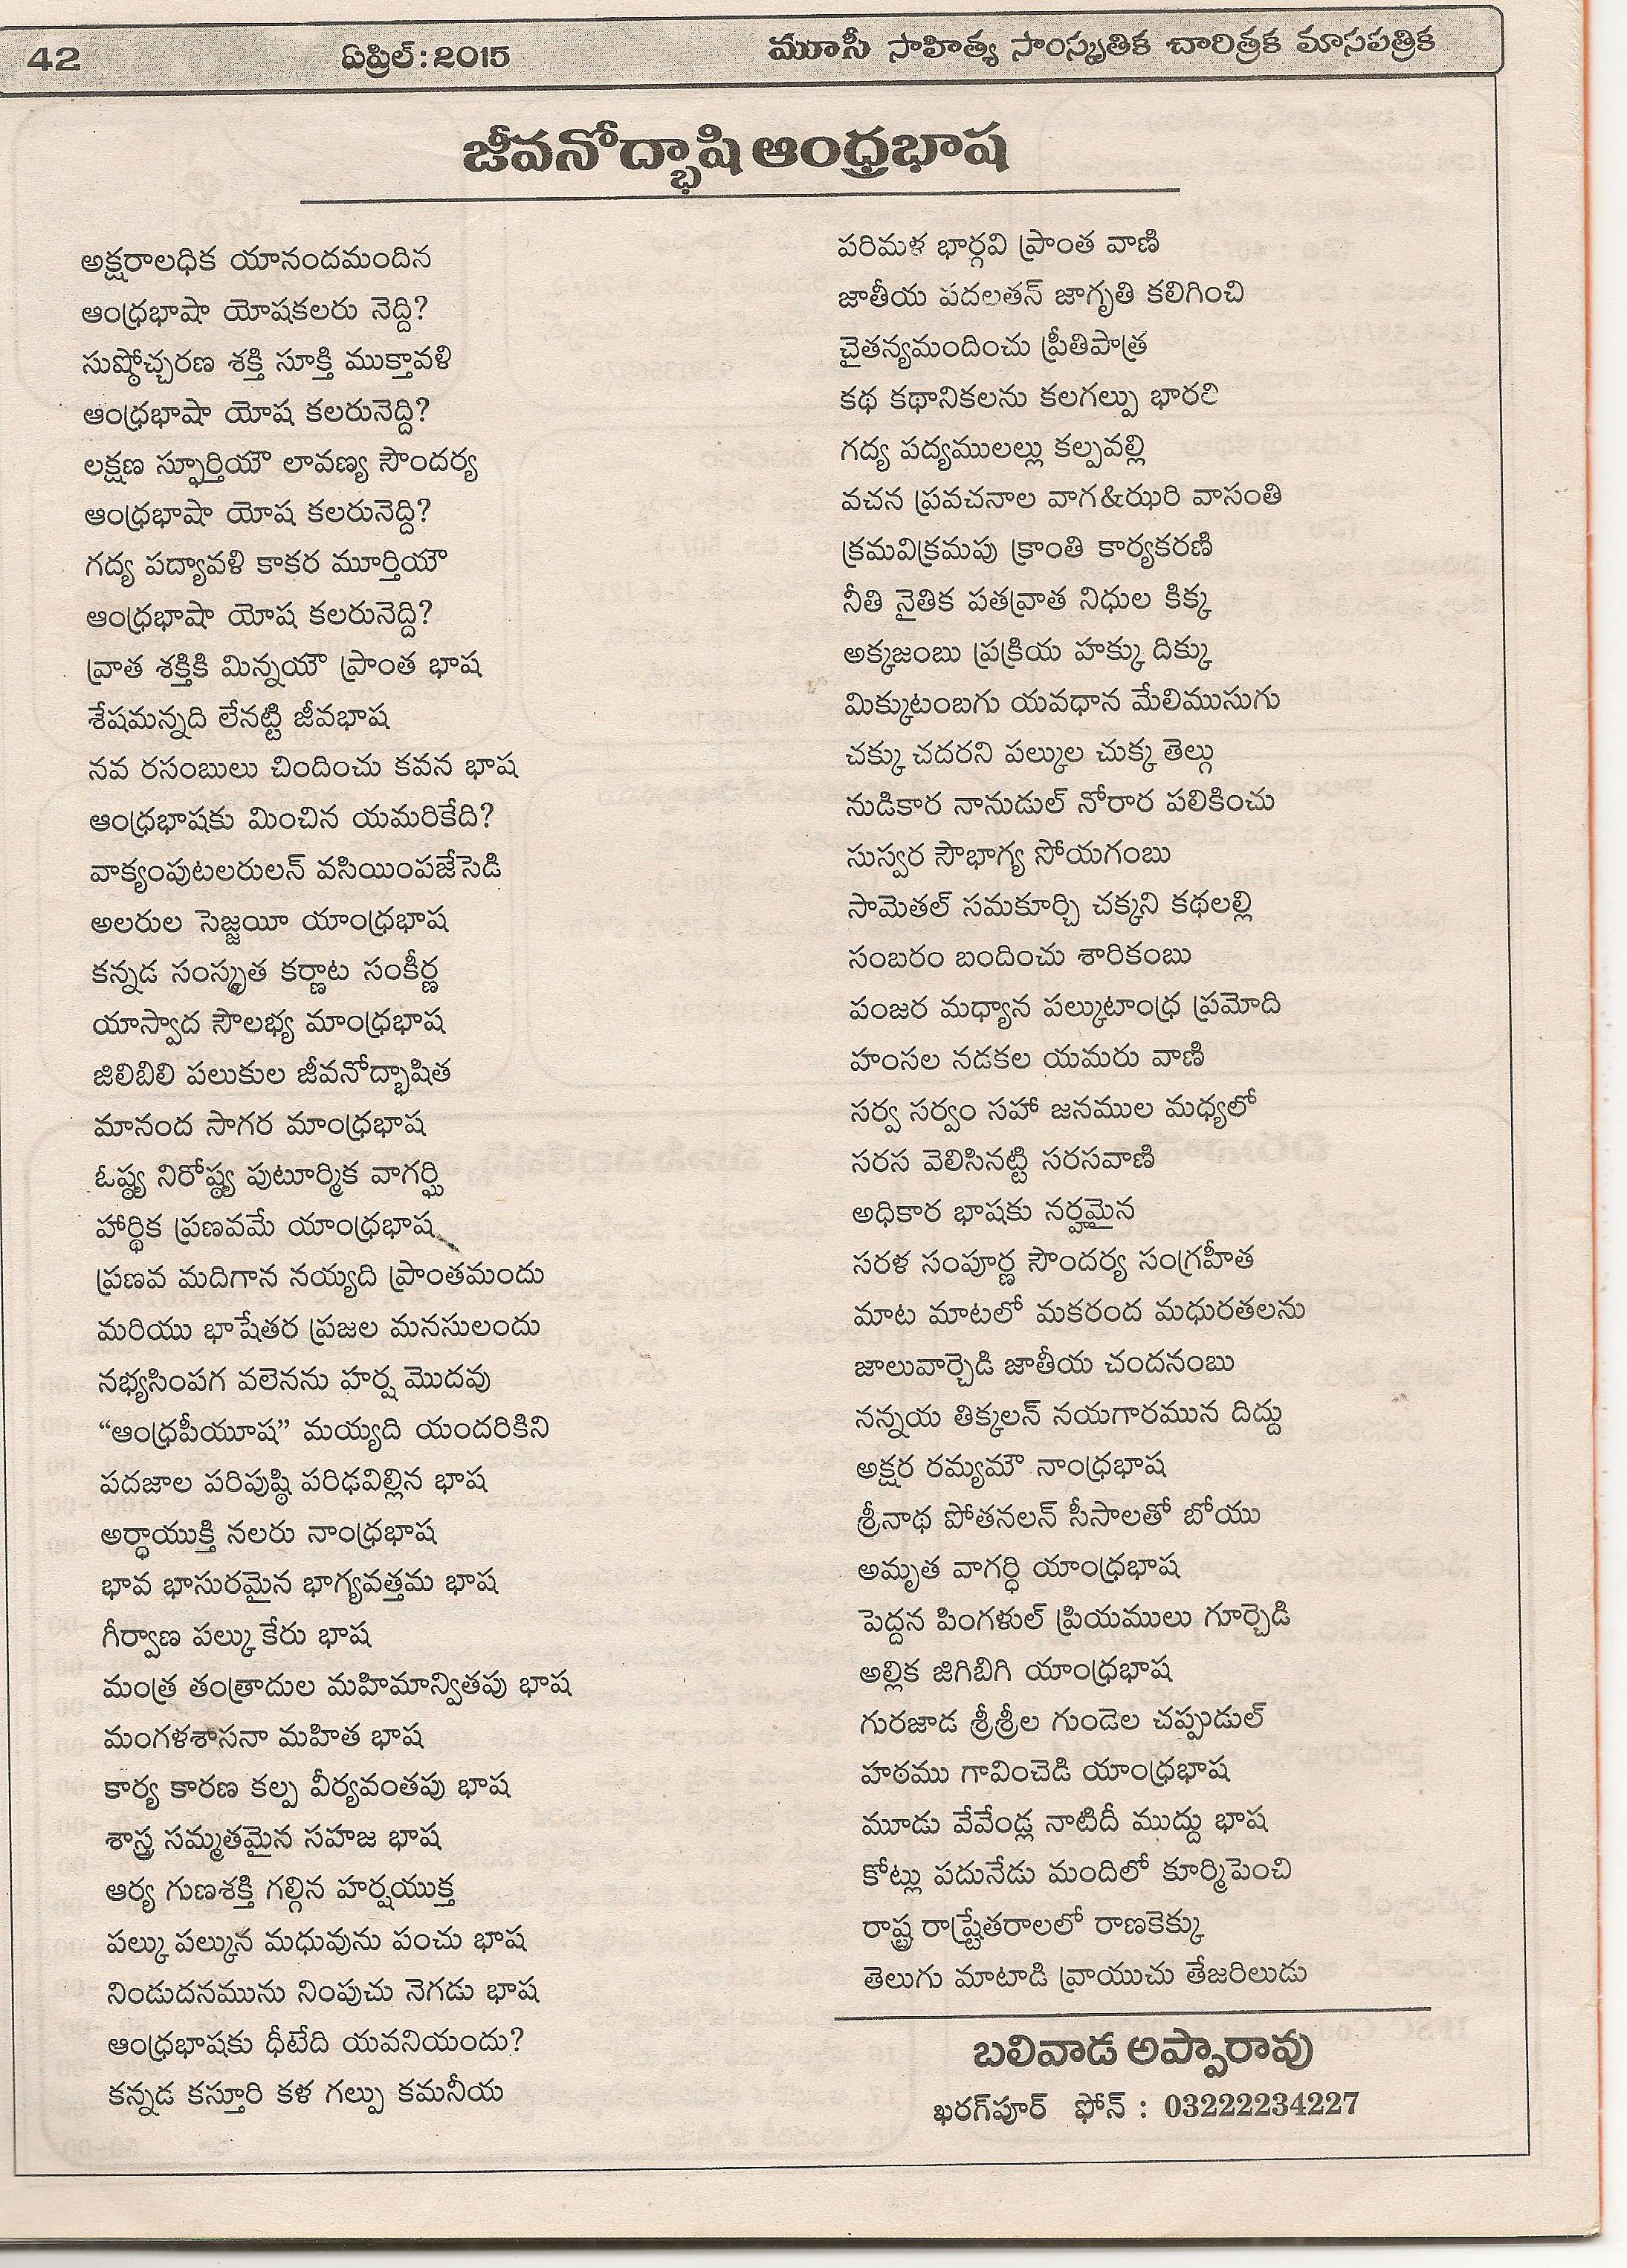 42 ఏప్రిల్: 2015 మూసీ సాహిత్య సాంస్కృతిక చారిత్రక మాసపత్రిక
జీవనోద్భాషి ఆంధ్రభాష
అక్షరాలధిక యానందమందిన
ఆంధ్రభాషా యోషకలరు నెద్ది?
సుష్ఠోచ్చరణ శక్తి సూక్తి ముక్తావళి
ఆంధ్రభాషా యోష కలరునెద్ది?
లక్షణ స్ఫూర్తియౌ లావణ్య సౌందర్య
ఆంధ్రభాషా యోష కలరునెద్ది?
గద్య పద్యావళి కాకర మూర్తియౌ
ఆంధ్రభాషా యోష కలరునెద్ది?
వ్రాత శక్తికి మిన్నయౌ ప్రాంత భాష
శేషమన్నది లేనట్టి జీవభాష
నవ రసంబులు చిందించు కవన భాష
ఆంధ్రభాషకు మించిన యమరికేది?
వాక్యంపుటలరులన్ వసియింపజేసెడి
అలరుల సెజ్జయీ యాంధ్రభాష
కన్నడ సంస్కృత కర్ణాట సంకీర్ణ
యాస్వాద సౌలభ్య మాంధ్రభాష
జిలిబిలి పలుకుల జీవనోద్భాషిత
మానంద సాగర మాంధ్రభాష
ఓష్ఠ్య నిరోష్ఠ్య పుటూర్మిక వాగర్ఘి
హార్థిక ప్రణవమే యాంధ్రభాష
ప్రణవ మదిగాన నయ్యది ప్రాంతమందు
మరియు భాషేతర ప్రజల మనసులందు
నభ్యసింపగ వలెనను హర్ష మొదవు
“ఆంధ్రపీయూష” మయ్యది యందరికిని
పదజాల పరిపుష్ఠి పరిఢవిల్లిన భాష
అర్ధాయుక్తి నలరు నాంధ్రభాష
భావ భాసురమైన భాగ్యవత్తమ భాష
గీర్వాణ పల్కు కేరు భాష
మంత్ర తంత్రాదుల మహిమాన్వితపు భాష
మంగళశాసనా మహిత భాష
కార్య కారణ కల్ప వీర్యవంతపు భాష
శాస్త్ర సమ్మతమైన సహజ భాష
ఆర్య గుణశక్తి గల్గిన హర్షయుక్త
పల్కు పల్కున మధువును పంచు భాష
నిండుదనమును నింపుచు నెగడు భాష
ఆంధ్రభాషకు ధీటేది యవనియందు?
కన్నడ కస్తూరి కళ గల్పు కమనీయ
పరిమళ భార్గవి ప్రాంత వాణి
జాతీయ పదలతన్ జాగృతి కలిగించి
చైతన్యమందించు ప్రీతిపాత్ర
కథ కథానికలను కలగల్పు భారతి
గద్య పద్యములల్లు కల్పవల్లి
వచన ప్రవచనాల వాగ&ఝరి వాసంతి
క్రమవిక్రమపు క్రాంతి కార్యకరణి
నీతి నైతిక పతవ్రాత నిధుల కిక్క
అక్కజంబు ప్రక్రియ హక్కు దిక్కు
మిక్కుటంబగు యవధాన మేలిముసుగు
చక్కు చదరని పల్కుల చుక్క తెల్గు
నుడికార నానుడుల్ నోరార పలికించు
సుస్వర సౌభాగ్య సోయగంబు
సామెతల్ సమకూర్చి చక్కని కథలల్లి
సంబరం బందించు శారికంబు
పంజర మధ్యాన పల్కుటాంధ్ర ప్రమోది
హంసల నడకల యమరు వాణి
సర్వ సర్వం సహా జనముల మధ్యలో
సరస వెలిసినట్టి సరసవాణి
అధికార భాషకు నర్హమైన
సరళ సంపూర్ణ సౌందర్య సంగ్రహీత
మాట మాటలో మకరంద మధురతలను
జాలువార్చెడి జాతీయ చందనంబు
నన్నయ తిక్కలన్ నయగారమున దిద్దు
అక్షర రమ్యమౌ నాంధ్రభాష
శ్రీనాథ పోతనలన్ సీసాలతో బోయు
అమృత వాగర్ధి యాంధ్రభాష
పెద్దన పింగళుల్ ప్రియములు గూర్చెడి
అల్లిక జిగిబిగి యాంధ్రభాష
గురజాడ శ్రీశ్రీల గుండెల చప్పుడుల్
హఠము గావించెడి యాంధ్రభాష
మూడు వేవేండ్ల నాటిదీ ముద్దు భాష
కోట్లు పదునేడు మందిలో కూర్మిపెంచి
రాష్ట్ర రాష్ట్రేతరాలలో రాణకెక్కు
తెలుగు మాటాడి వ్రాయుచు తేజరిలుడు
బలివాడ అప్పారావు
ఖరగ్‌పూర్ ఫోన్ : 03222234227